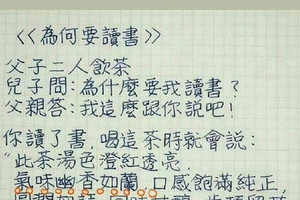 <<為何要讀書>>
父子二人飲茶
兒子問:為什麼要我讀書?
父親答:我這麼跟你說吧!
你讀了書,喝這茶時就會說:
"此茶湯色澄紅透亮,
氣味幽香如蘭,口感飽滿純正,